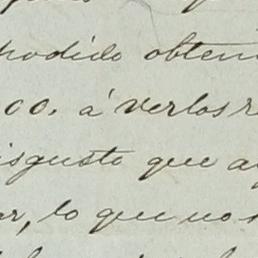 podido obten
00. á verlos r
isgusto que a
ar, lo que no